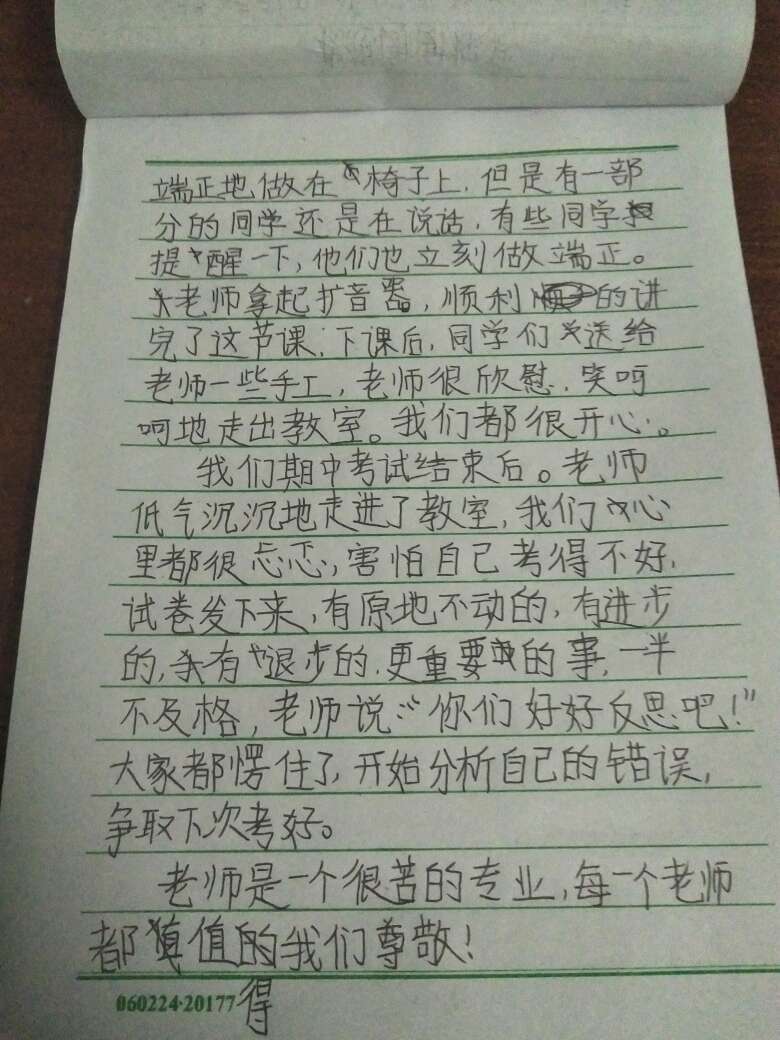 端正地做在椅子上，但是有一部
分的同学还是在说话，有些同学
提醒一下，他们也立刻做端正。
老师拿起扩音器，顺利的讲
完了这节课，下课后，同学们送给
老师一些手工，老师很欣慰，笑呵
呵地走出教室。我们都很开心。
我们期中考试结束后。老师
低气沉沉地走进了教室，我们心
里都很忐忑，害怕自己考得不好，
试卷发下来，有原地不动的，有进步
的，有退步的，更重要的事，一半
不及格，老师说：“你们好好反思吧！”
大家都愣住了，开始分析自己的错误，
争取下次考好。
老师是一个很苦的专业，每一个老师
都值得我们尊敬！
060224·20177